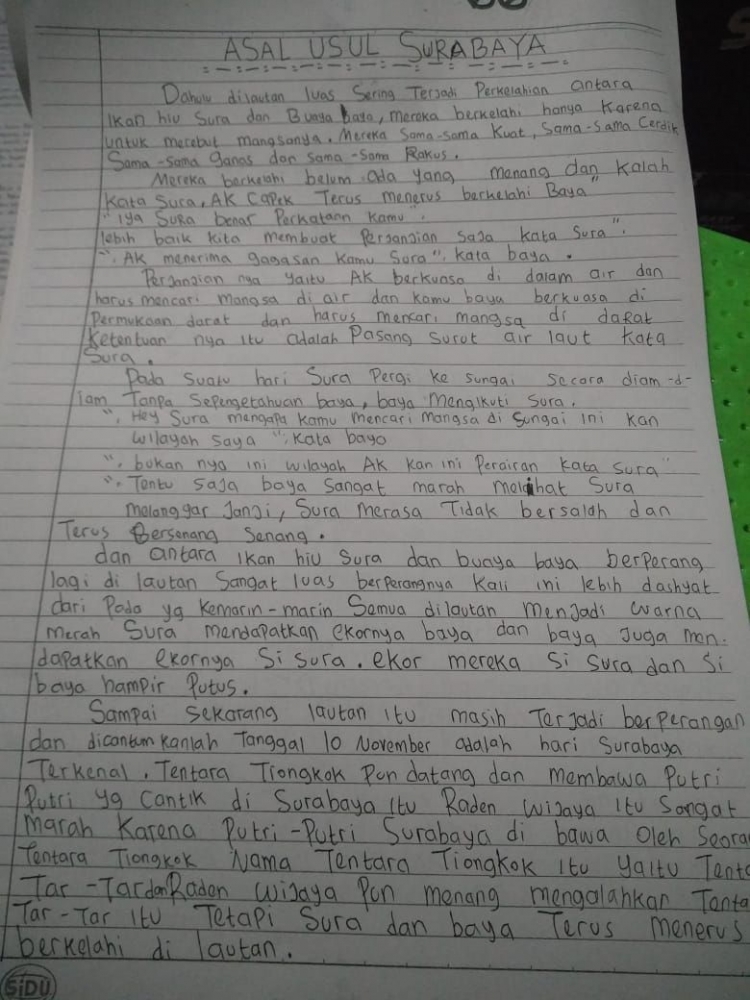 ASAL USUL SURABAYA
Dahulu dilautan luas Sering Terjadi Perkelahian antara
Ikan hiu Sura dan Buaya Baya, mereka berkelahi hanya Karena
untuk merebut mangsanya. Mereka Sama-sama Kuat, Sama-Sama Cerdik
Sama-Sama ganas dan sama-Sama Rakus.
Mereka berkelahi belum ada yang menang dan Kalah
Kata Sura, AK Capek Terus menerus berkelahi Baya"
"iya Sura benar Perkataan Kamu".
lebih baik kita membuat Perjanjian saja kata Sura".
". AK menerima gagasan Kamu Sura". kata baya.
Perjanjian nya yaitu AK berkuasa di dalam air dan
harus mencari mangsa di air dan kamu baya berkuasa di
Permukaan darat dan harus mencari mangsa di daRat
Ketentuan nya itu adalah Pasang Surut air laut Kata
Sura.
Pada suatu hari Sura Pergi ke sungai secara diam-d-
iam Tanpa Sepengetahuan baya, baya Mengikuti Sura.
". Hey Sura mengapa Kamu mencari Mangsa di Sungai ini kan
wilayah saya ". Kata baya
". bukan nya ini wilayah AK kan ini Perairan kata Sura"
". Tentu saja baya Sangat marah melihat Sura
melanggar Janji, Sura merasa Tidak bersalah dan
Terus Bersenang Senang.
dan antara Ikan hiu Sura dan buaya baya berperang
lagi di lautan Sangat luas berperangnya Kali ini lebih dashyat
dari Pada yg Kemarin-marin Semua dilautan menjadi warna
merah Sura mendapatkan ekornya baya dan baya Juga men-
dapatkan ekornya Si sura. ekor mereka Si Sura dan Si
baya hampir Putus.
Sampai Sekarang lautan itu masih Terjadi berperangan
dan dicantumkanlah Tanggal 10 November adalah hari Surabaya
Terkenal. Tentara Tiongkok Pun datang dan membawa Putri
Putri yg Cantik di Surabaya itu Raden wijaya itu Sangat
marah Karena Putri-Putri Surabaya di bawa oleh Seora
Tentara Tiongkok Nama Tentara Tiongkok itu yaitu Tent
Tar-Tar dan Raden wijaya Pun menang mengalahkan Tenta
Tar-Tar itu Tetapi Sura dan baya Terus menerus
berkelahi di lautan.
SiDU